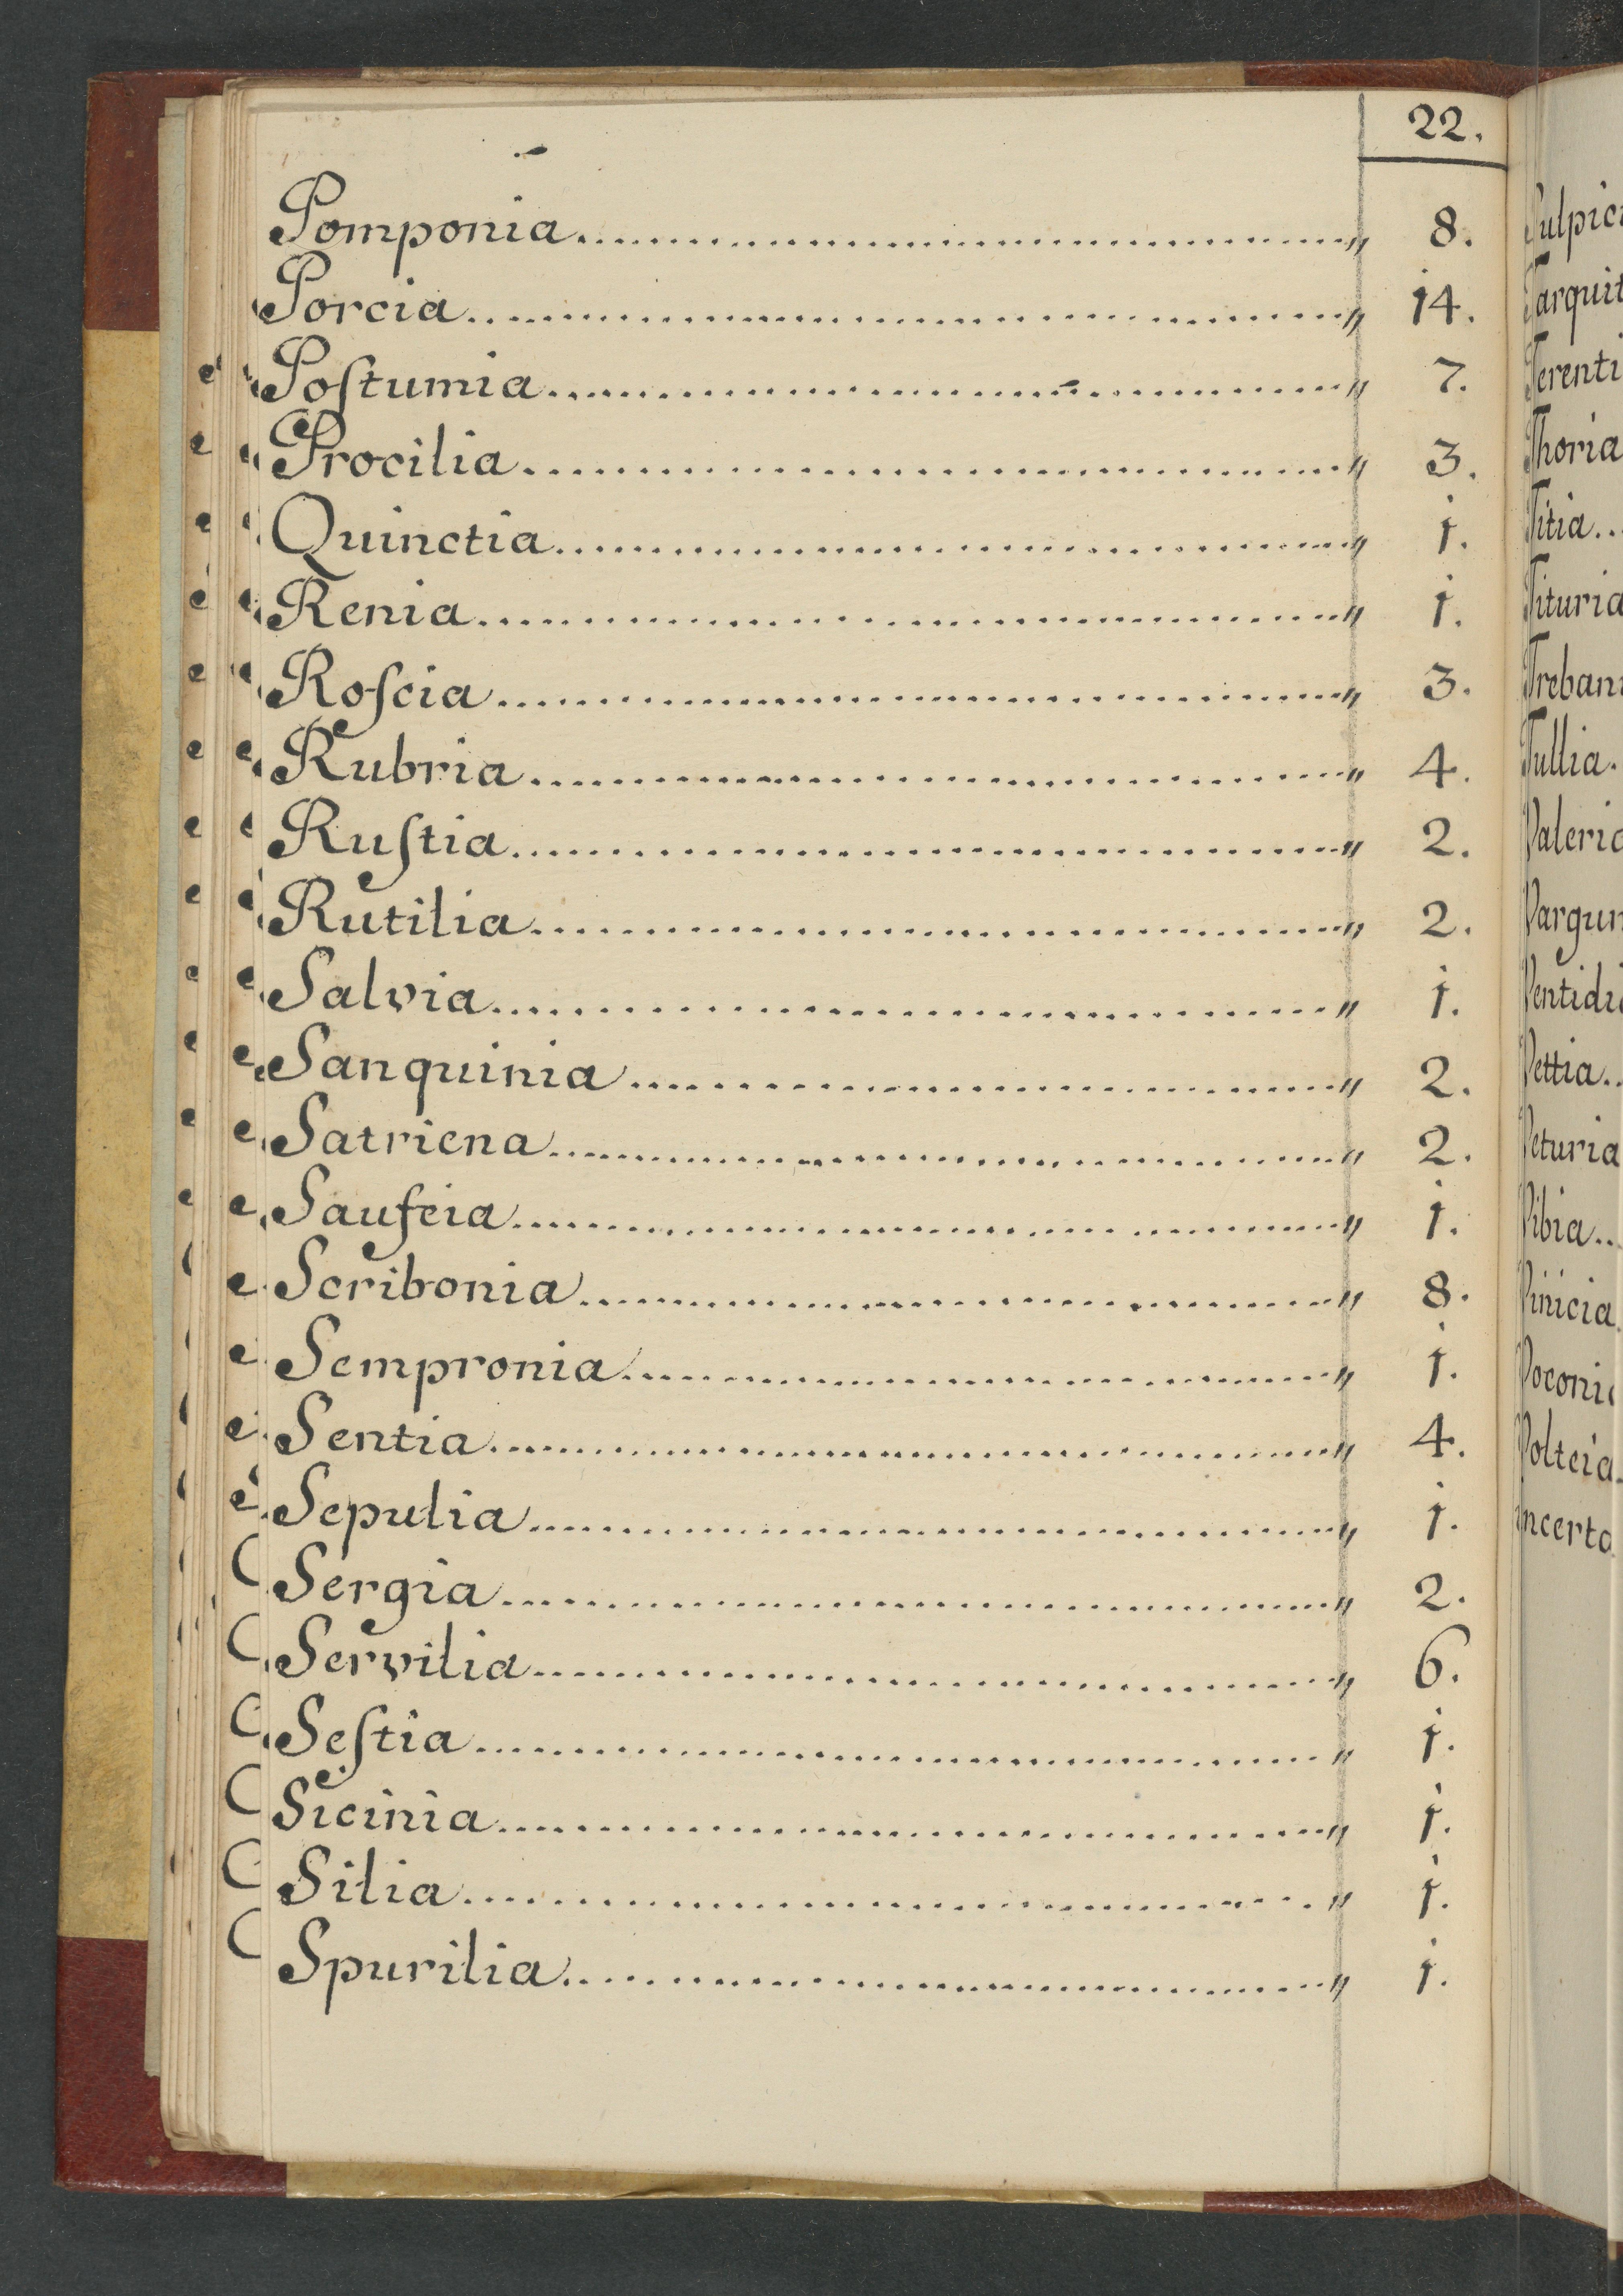 22.
Pomponia........................................„ 8.
Porcia........................................„ 14.
Poſtumia........................................„ 7.
Procilia........................................„ 3.
Quinctia........................................„ 1.
Renia........................................„ 1.
Roſcia........................................„ 3.
Rubria........................................„ 4.
Ruſtia........................................„ 2.
Rutilia........................................„ 2.
Salvia........................................„ 1.
Sanquinia........................................„ 2.
Satriena........................................„ 2.
Saufeia........................................„ 1.
Scribonia........................................„ 8.
Sempronia........................................„ 1.
Sentia........................................„ 4.
Sepulia........................................„ 1.
Sergia........................................„ 2.
Servilia........................................„ 6.
Seſtia........................................„ 1.
Sicinia........................................„ 1.
Silia........................................„ 1.
Spurilia........................................„ 1.
ulpici
arquit
Terenti
Thoria
Titia...
Tituria
Treban
Tullia.
Valeria
Vargun
Ventidi
Vettia..
Veturia
Vibia...
Vinicia.
Voconi
Volteia
ncerta